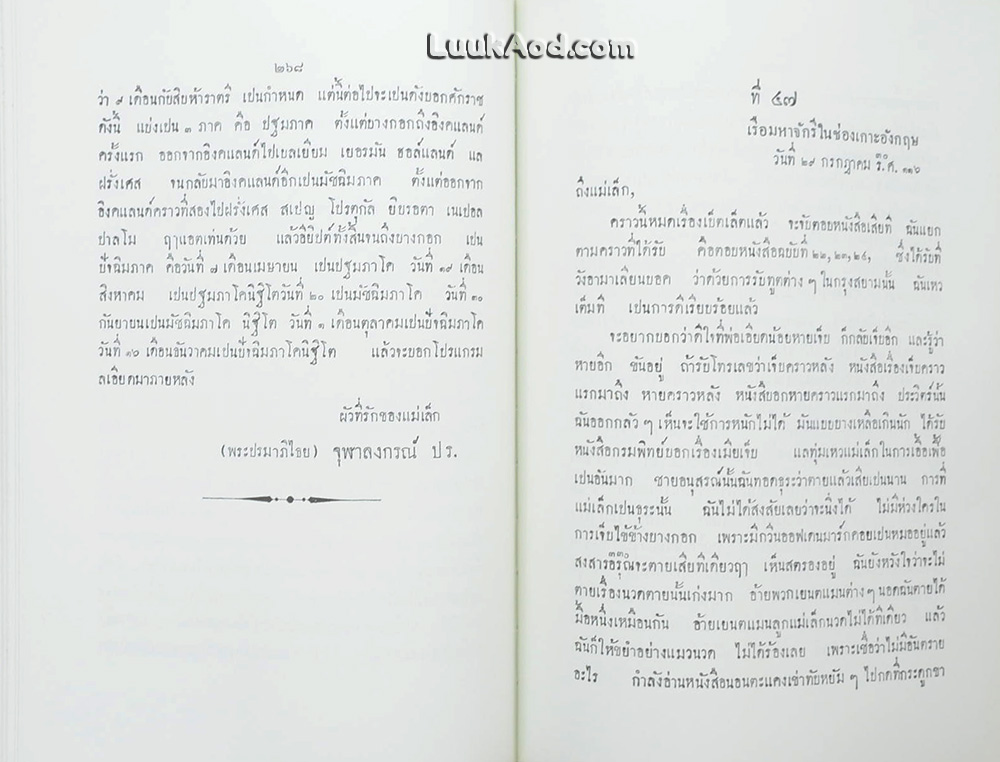 LuukAod.com
๒๖๘
ว่า ๙ เดือนกับสิบห้าราตรี เปนกำหนด แต่นี้ต่อไปจะเปนดังบอกศักราช
ดังนี้ แบ่งเปน ๓ ภาค คือ ปฐมภาค ตั้งแต่บางกอกถึงอิงคแลนด์
ครั้งแรก ออกจากอิงคแลนด์ไปเบลเยียม เยอรมัน ฮอล์แลนด์ แล
ฝรั่งเศส จนกลับมาอิงคแลนด์อีกเปนมัชฌิมภาค ตั้งแต่ออกจาก
อิงคแลนด์คราวที่สองไปฝรั่งเศส สเปญ โปรตุกัล ยิบรอตา เนเปอล
ปาลโม ฤๅแอตเท่นด้วย แล้วอียิปต์ทั้งสิ้นจนถึงบางกอก เปน
ปัจฉิมภาค คือวันที่ ๗ เดือนเมษายน เปนปฐมภาโค วันที่ ๑๙ เดือน
สิงหาคม เปนปฐมภาโคนิฐิโตวันที่ ๒๐ เปนมัชฌิมภาโค วันที่ ๓๐
กันยายนเปนมัชฌิมภาโค นิฐิโต วันที่ ๑ เดือนตุลาคมเปนปัจฉิมภาโค
วันที่ ๑๖ เดือนธันวาคมเปนปัจฉิมภาโคนิฐิโต แล้วจะบอกโปรแกรม
ลเอียดมาภายหลัง
ผัวที่รักของแม่เล็ก
(พระปรมาภิไธย) จุฬาลงกรณ์ ปร.
ที่ ๔๗
เรือมหาจักรีในช่องเกาะอังกฤษ
วันที่ ๒๙ กรกฎาคม ร.ศ. ๑๑๖
ถึงแม่เล็ก,
คราวนี้หมดเรื่องเบ็ดเล็ดแล้ว จะจับตอบหนังสือเสียที ฉันแยก
ตามคราวที่ได้รับ คือตอบหนังสือฉบับที่ ๒๒,๒๓,๒๔, ซึ่งได้รับที่
วังอามาเลียนบอค ว่าด้วยการรับทูตต่าง ๆ ในกรุงสยามนั้น ฉันเหว
เต็มที เปนการดีเรียบร้อยแล้ว
จะอยากบอกว่าดีใจที่พ่อเอียดน้อยหายเจ็บ ก็กลับเจ็บอีก และรู้ว่า
หายอีก ขันอยู่ ถ้ารับโทรเลขว่าเจ็บคราวหลัง หนังสือเรื่องเจ็บคราว
แรกมาถึง หายคราวหลัง หนังสือบอกหายคราวแรกมาถึง ประวิตร์นั้น
ฉันออกกลัว ๆ เห็นจะใช้การหนักไม่ได้ มันแบบบางเหลือเกินนัก ได้รับ
หนังสือกรมพิทย์บอกเรื่องเมียเจ็บ แลทุ่มเหวแม่เล็กในการเอื้อเฟื้อ
เปนอันมาก ชายอนุสรณ์นั้นฉันทอดธุระว่าตายแล้วเสียเปนนาน การที่
แม่เล็กเปนธุระนั้น ฉันไม่ได้สงสัยเลยว่าจะนิ่งได้ ไม่มีห่วงใครใน
การเจ็บไข้ข้างบางกอก เพราะมีกวีนออฟเดนมาร์กคอยเปนหมออยู่แล้ว
สงสารอรุณจะตายเสียทีเดียวฤๅ เห็นสตรองอยู่ ฉันยังหวังใจว่าจะไม่
ตายเรื่องนวดตายนั้นเก่งมาก อ้ายพวกเยนตแมนต่าง ๆ นอดฉันตายได้
มื้อหนึ่งเหมือนกัน อ้ายเยนตแมนลูกแม่เล็กนวดไม่ได้ทีเดียว แล้ว
ฉันก็ให้ขยำอย่างแมวนวด ไม่ได้ร้องเลย เพราะเชื่อว่าไม่มีอันตราย
อะไร กำลังอ่านหนังสือนอนตะแคงเข่าทับหยับ ๆ ไปกดที่กระดูกขา